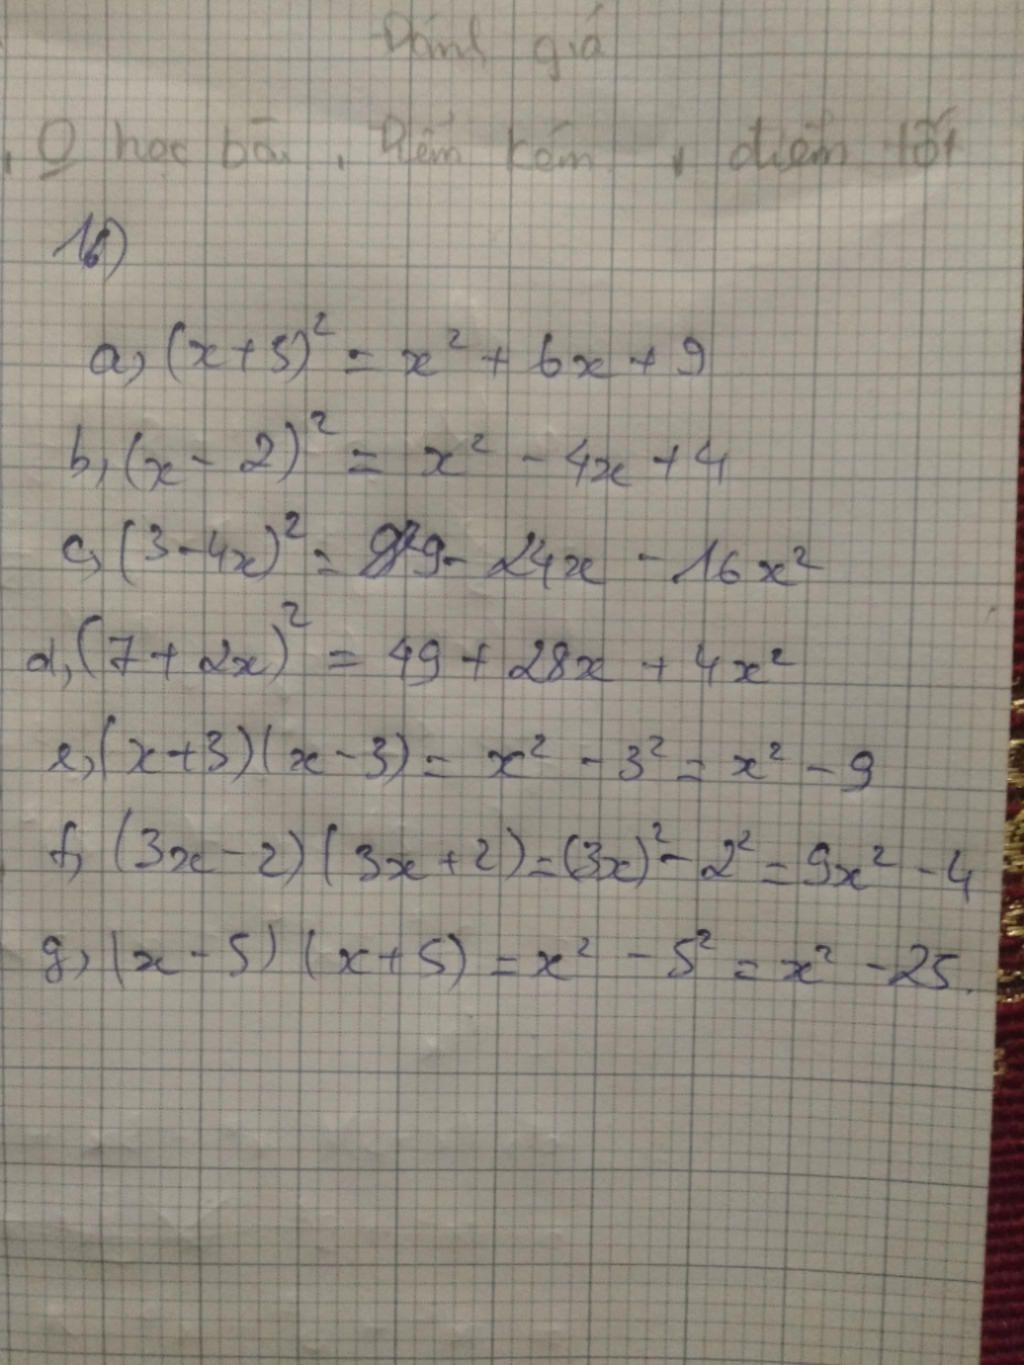 Đánh giá
O học bài, Điểm kém, điểm tốt
16)
a, (x+3)² = x² + 6x + 9
b, (x - 2)² = x² - 4x + 4
c, (3-4x)² = 9 - 24x - 16x²
d, (7 + 2x)² = 49 + 28x + 4x²
e, (x+3)(x-3) = x² - 3² = x² - 9
f, (3x-2)(3x+2) = (3x)² - 2² = 9x² - 4
g, (x-5)(x+5) = x² - 5² = x² - 25.